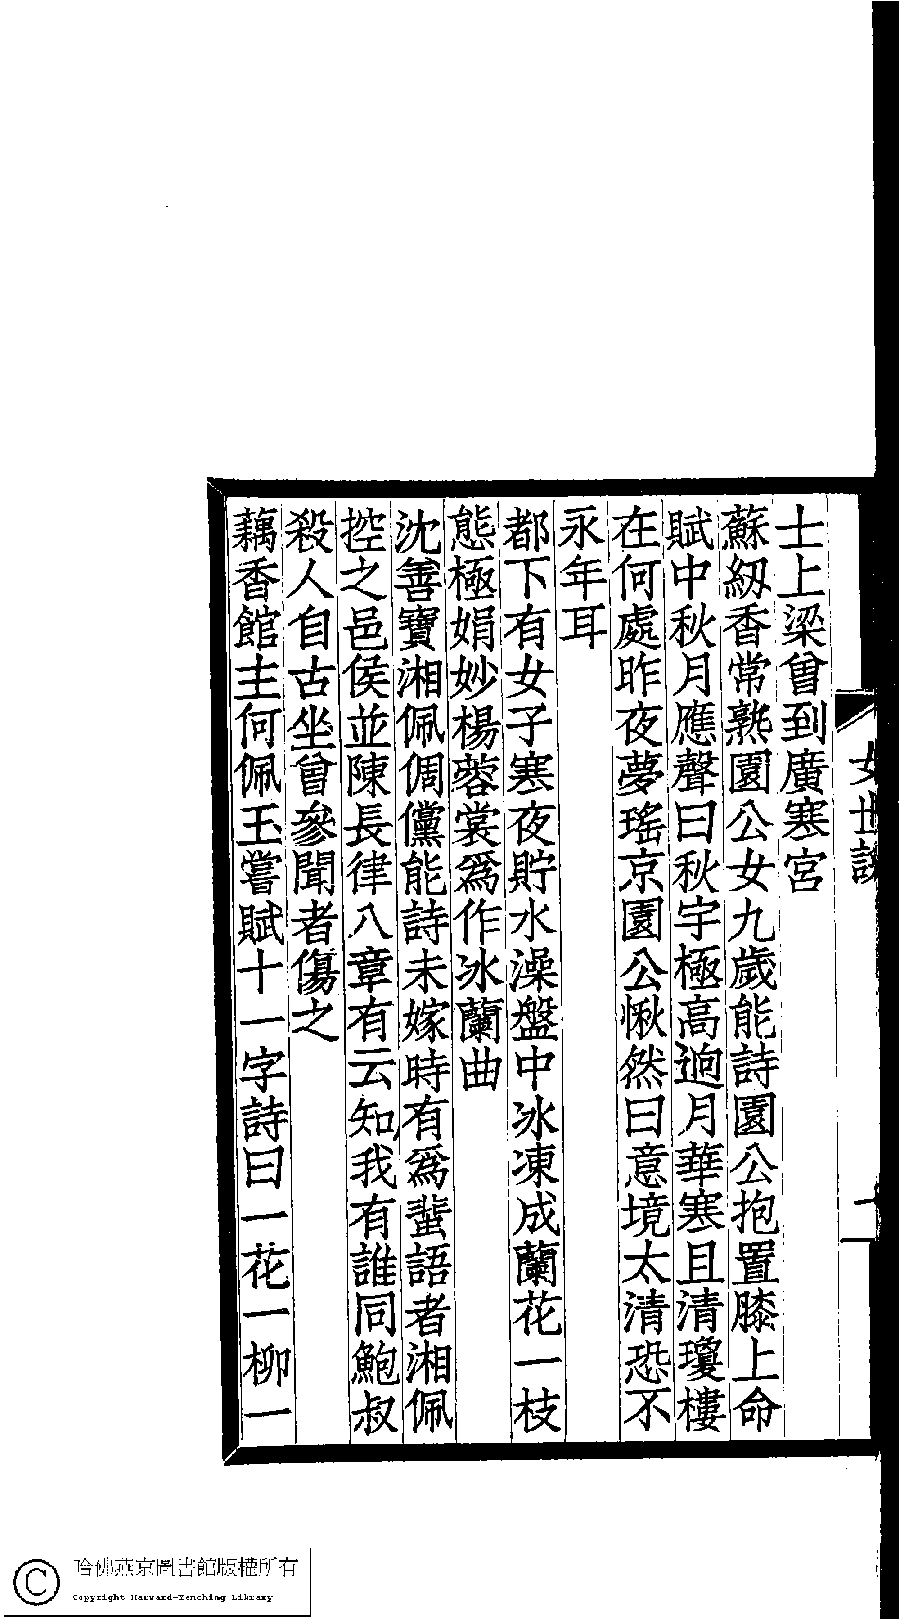 女世說
一
士上梁曾到廣寒宮
蘇紉香常熟園公女九歲能詩園公抱置膝上命
賦中秋月應聲曰秋宇極高迥月華寒且清瓊樓
在何處昨夜夢瑤京園公愀然曰意境太清恐不
永年耳
都下有女子寒夜貯水澡盤中冰凍成蘭花一枝
態極娟妙楊蓉裳爲作冰蘭曲
沈善寶湘佩倜儻能詩未嫁時有爲蜚語者湘佩
控之邑侯並陳長律八章有云知我有誰同鮑叔
殺人自古坐曾參聞者傷之
藕香館主何佩玉嘗賦十一字詩曰一花一柳一
哈佛燕京圖書館版權所有
Copyright Harvard-Yenching Library